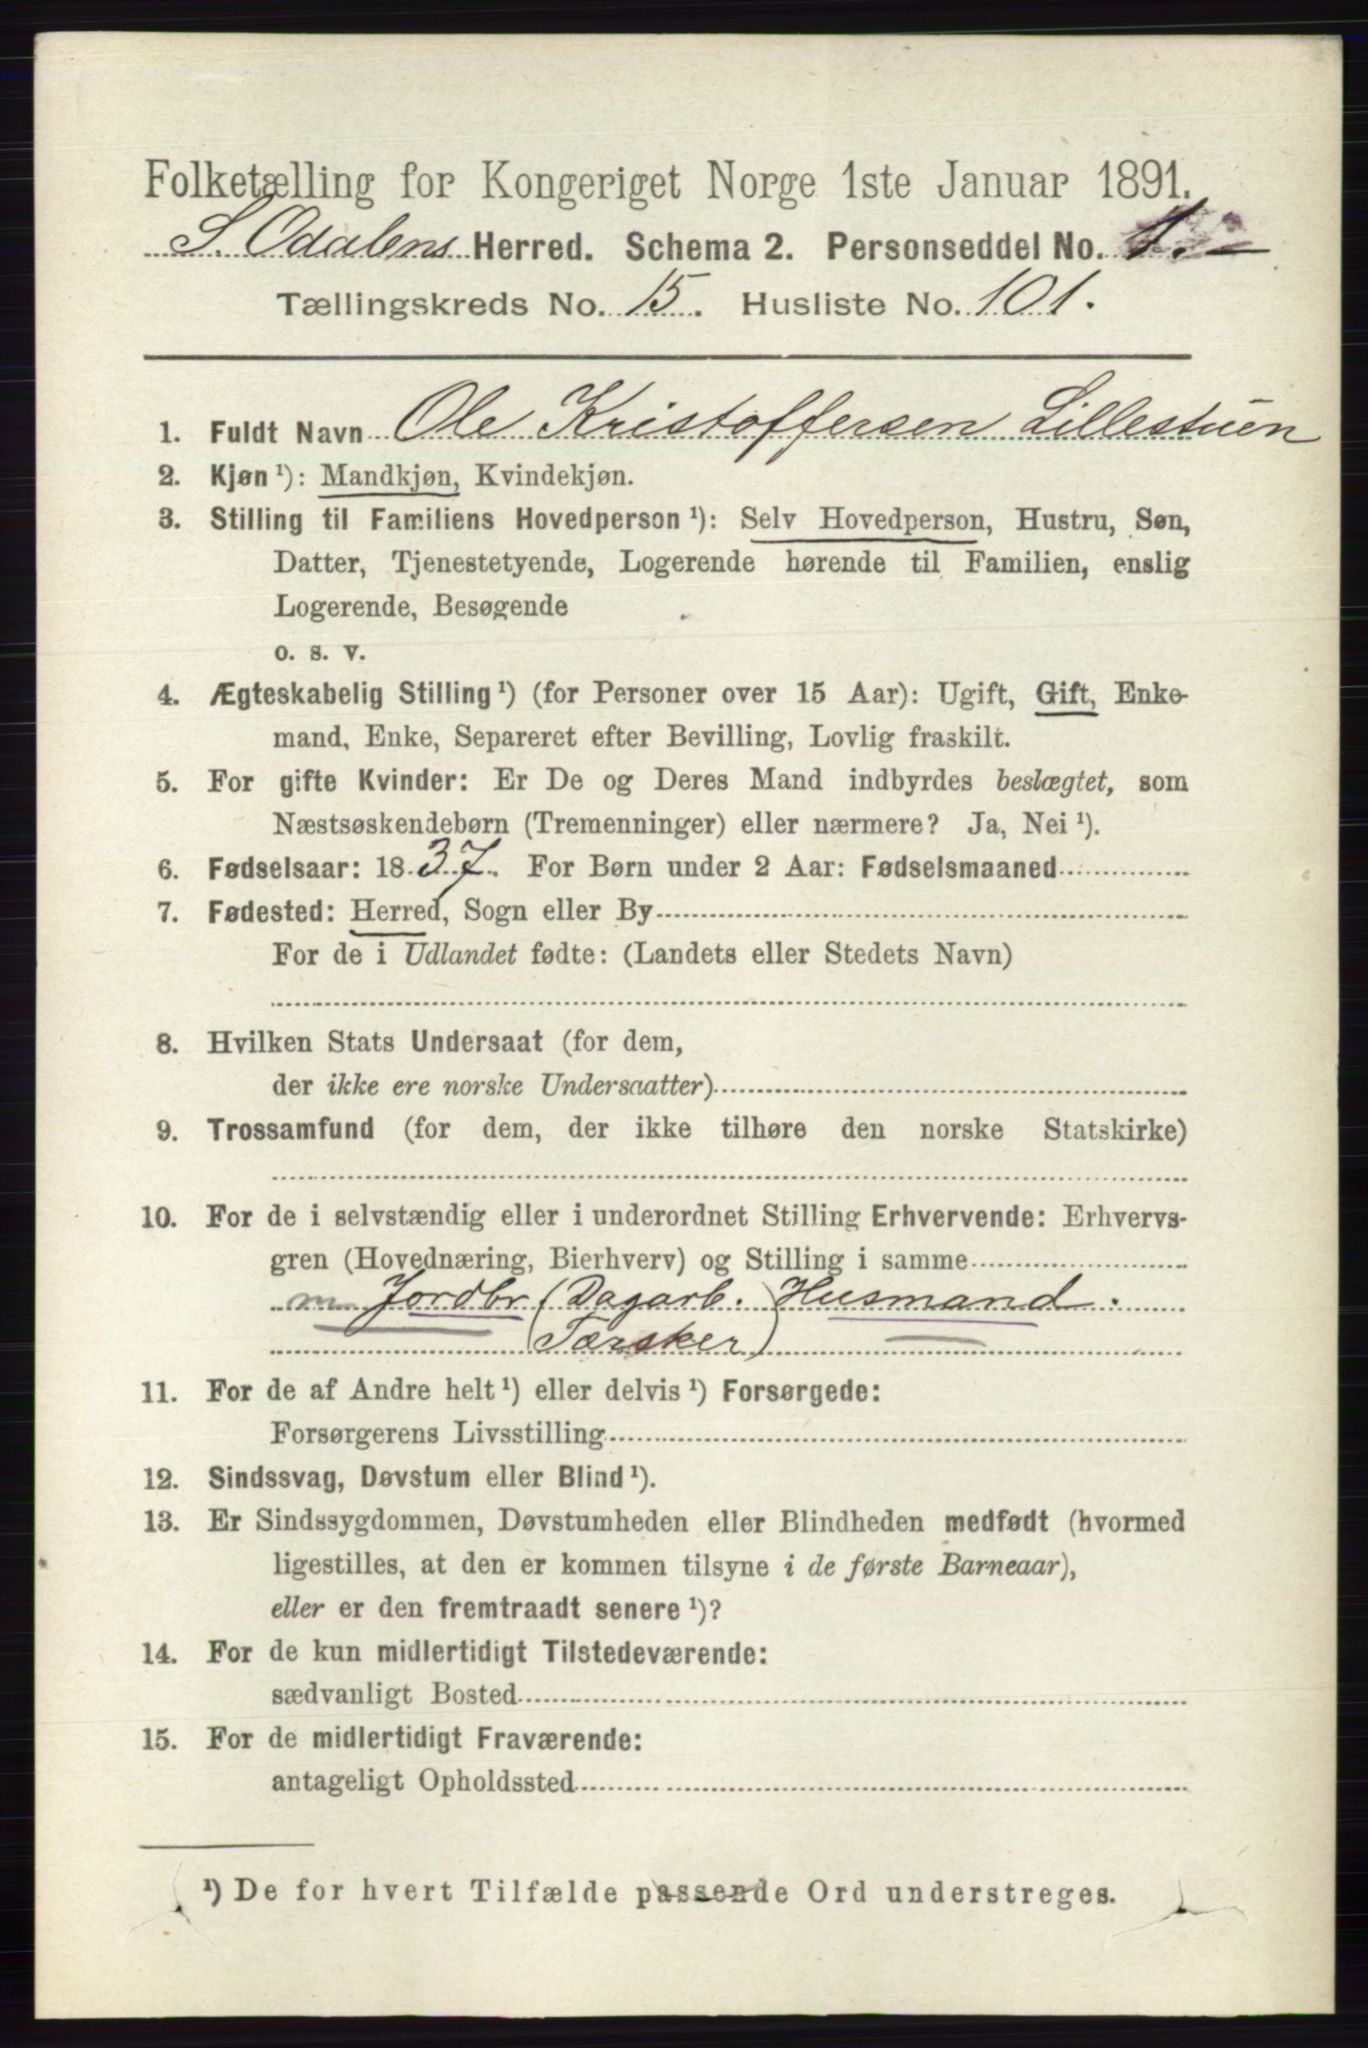 Folketælling for Kongeriget Norge 1ste Januar 1891.
S. Odalens Herred. Schema 2. Personseddel No. 1.
Tællingskreds No. 15. Husliste No. 101.
1. Fuldt Navn Ole Kristoffersen Lillestuen
2. Kjøn ¹): Mandkjøn, Kvindekjøn.
3. Stilling til Familiens Hovedperson ¹): Selv Hovedperson, Hustru, Søn,
Datter, Tjenestetyende, Logerende hørende til Familien, enslig
Logerende, Besøgende
o. s. v.
4. Ægteskabelig Stilling ¹) (for Personer over 15 Aar): Ugift, Gift, Enke-
mand, Enke, Separeret efter Bevilling, Lovlig fraskilt.
5. For gifte Kvinder: Er De og Deres Mand indbyrdes beslægtet, som
Næstsøskendebørn (Tremenninger) eller nærmere? Ja, Nei ¹).
6. Fødselsaar: 1837. For Børn under 2 Aar: Fødselsmaaned
7. Fødested: Herred, Sogn eller By
For de i Udlandet fødte: (Landets eller Stedets Navn)
8. Hvilken Stats Undersaat (for dem,
der ikke ere norske Undersaatter)
9. Trossamfund (for dem, der ikke tilhøre den norske Statskirke)
10. For de i selvstændig eller i underordnet Stilling Erhvervende: Erhvervs-
gren (Hovednæring, Bierhverv) og Stilling i samme
m Jordbr (Dagarb. Husmand.
Tærsker)
11. For de af Andre helt ¹) eller delvis ¹) Forsørgede:
Forsørgerens Livsstilling
12. Sindssvag, Døvstum eller Blind ¹).
13. Er Sindssygdommen, Døvstumheden eller Blindheden medfødt (hvormed
ligestilles, at den er kommen tilsyne i de første Barneaar),
eller er den fremtraadt senere ¹)?
14. For de kun midlertidigt Tilstedeværende:
sædvanligt Bosted
15. For de midlertidigt Fraværende:
antageligt Opholdssted
¹) De for hvert Tilfælde passende Ord understreges.